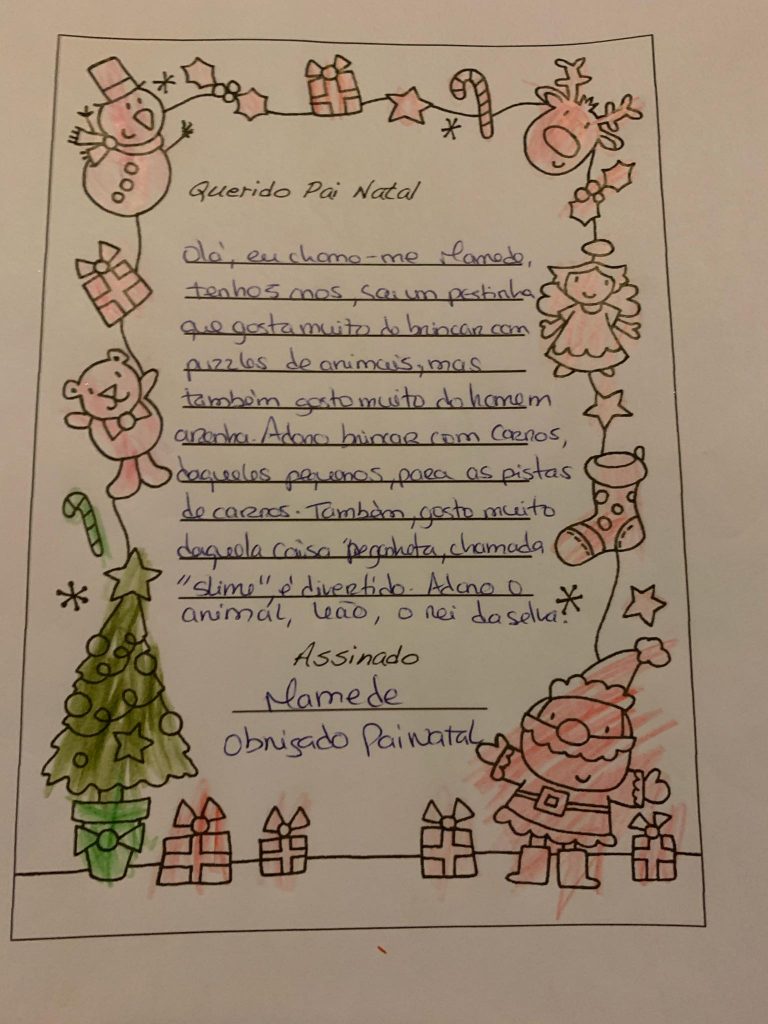 Querido Pai Natal
Olá, eu chamo-me Mamede,
tenho 5 anos, sou um pestinha
que gosta muito de brincar com
puzzles de animais, mas
também gosto muito do homem
aranha. Adoro brincar com carros,
daqueles pequenos, para as pistas
de carros. Também, gosto muito
daquela coisa "peganhota, chamada
"slime", é divertido. Adoro o
animal, leão, o rei da selva.
Assinado
Mamede
Obrigado Pai Natal